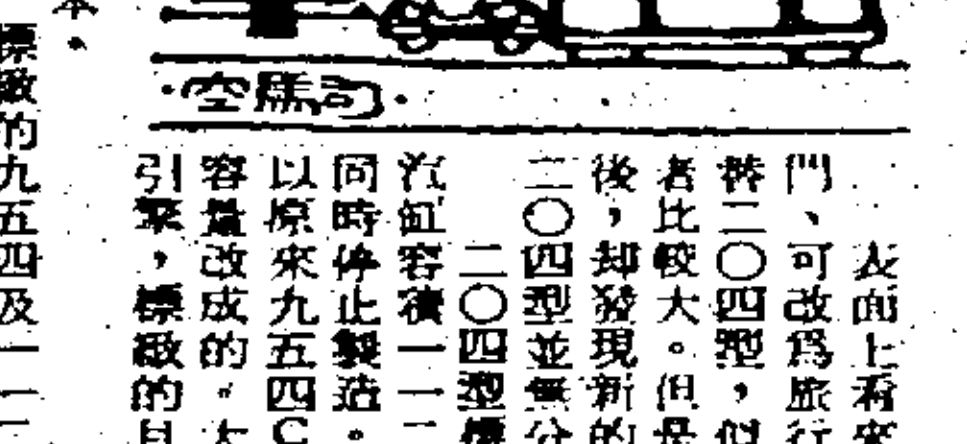 ·司馬空·
表面上看來
門、可改為旅行
替二〇四型，似
者比較大。但是
後，却發現新的
二〇四型並無分
二〇四型標
汽缸容積一一二
同時停止製造。
以原來九五四C
容量改成的。大
引擎，標緻的目
本。
標緻的九五四及一一二